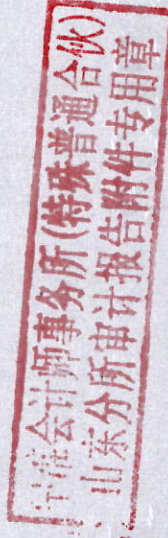 会计师事务所(特殊普通合伙)
山东分所审计报告附件专用章